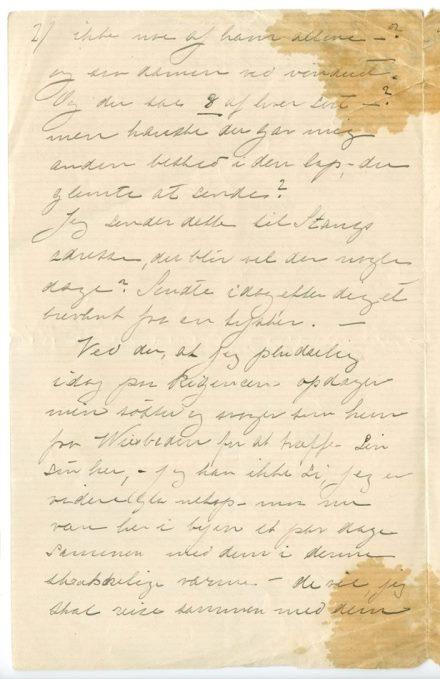 2/ ikke noe af ham allene – ?
og saa damen ved vinduet.
Og du saa 8 af hver sort – ?
men kanske du gav mig
anden besked i den lap, du
glemte at sende?
Jeg sender dette til Stangs
adresse, du blir vel der nogle
dage? Sendte idag efter dig et
brevkort fra en
Ved du, at jeg pludselig
idag paa opdager
min søster og svoger som kom
fra Wiesbaden for at træffe sin
søn her, – jeg kan ikke si jeg er
netop – maa nu
være her i byen et par dage
sammen med dem i denne
skrækkelige varme – de vil, jeg
skal reise sammen med dem